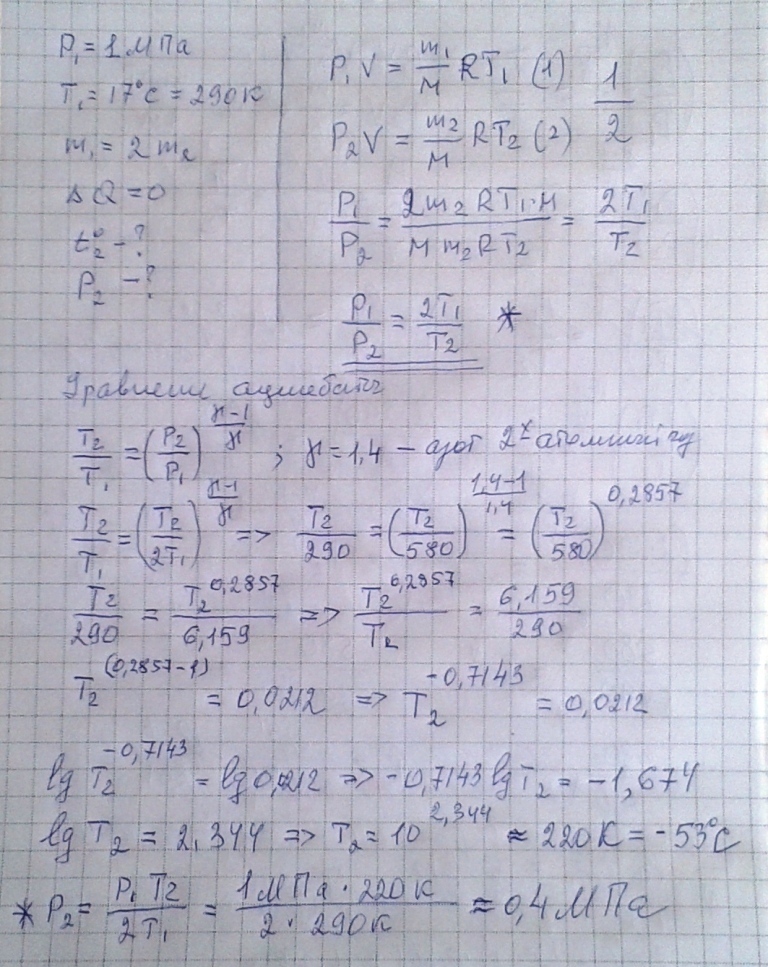 P₁ = 1 МПа
T₁ = 17°C = 290К
m₁ = 2 m₂
ΔQ = 0
t₂° – ?
P₂ – ?
P₁V = m₁/M RT₁ (1)
P₂V = m₂/M RT₂ (2)
1/2
P₁/P₂ = 2m₂ RT₁·M / M m₂ RT₂ = 2T₁/T₂
P₁/P₂ = 2T₁/T₂ *
T₂/T₁ = (P₂/P₁)^(γ-1)/γ ; γ = 1,4 – азот 2х атомный
T₂/T₁ = (T₂/2T₁)^(γ-1)/γ => T₂/290 = (T₂/580)^(1,4-1)/1,4 = (T₂/580)^0,2857
T₂/290 = T₂^0,2857/6,159 => T₂^0,2857/T₂ = 6,159/290
T₂^(0,2857-1) = 0,0212 => T₂^-0,7143 = 0,0212
lg T₂^-0,7143 = lg 0,0212 => -0,7143 lg T₂ = -1,674
lg T₂ = 2,344 => T₂ = 10^2,344 ≈ 220К = -53°C
* P₂ = P₁T₂/2T₁ = 1МПа · 220К / 2 · 290К ≈ 0,4 МПа